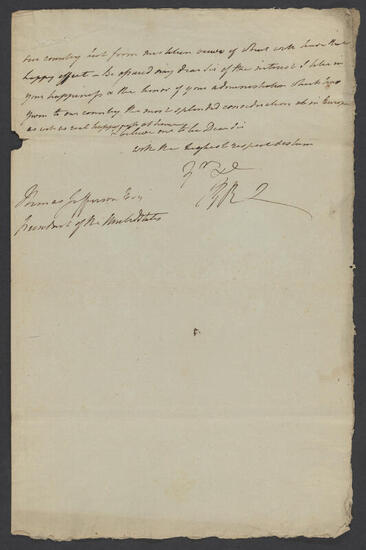 our country but from mistaken views of that will have that
happy effect – Be assured my dear Sir of the interest I take in
your happiness & the honor of your administration that has
given to our country the most splendid consideration abroad in Europe
as well as real happiness at home
believe me to be Dear Sir
with the highest respect & esteem
RRL
Thomas Jefferson Esqr
President of the United States